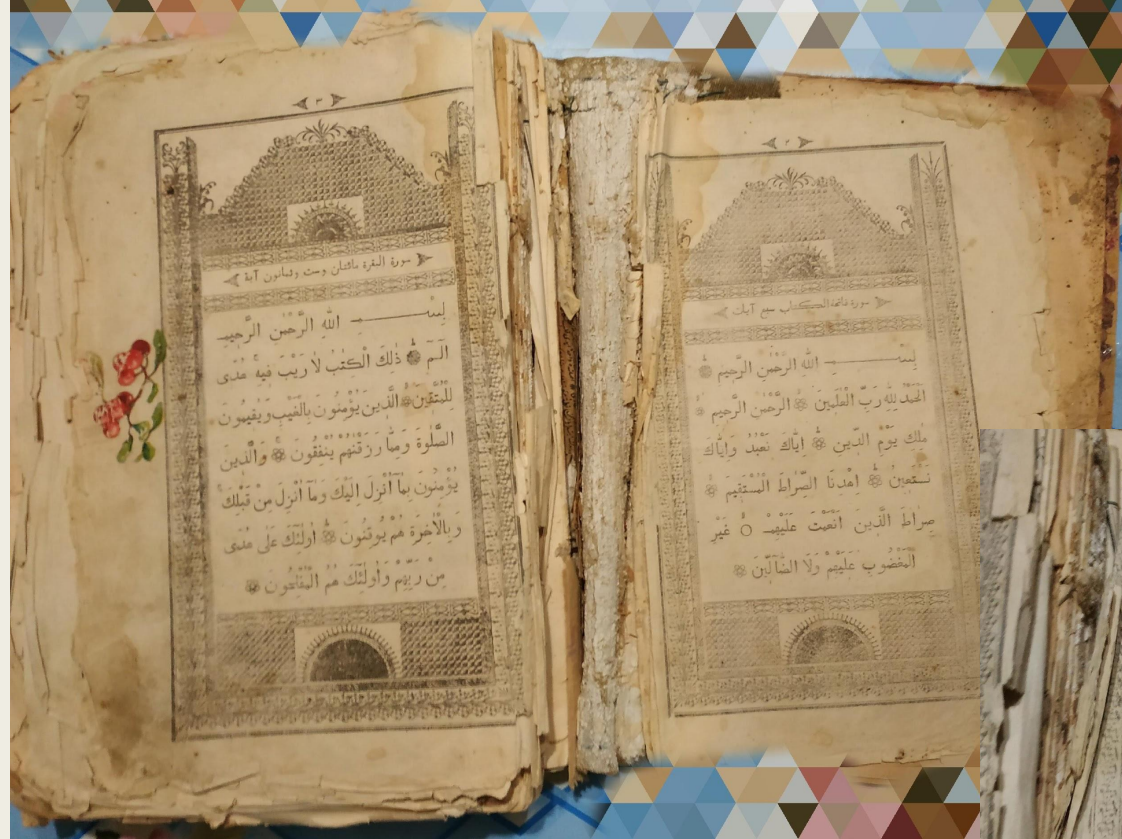 ٢
سورة فاتحة الكتاب سبع آيات
بِسْــــــمِ اللهِ الرَّحْمٰنِ الرَّحِيمِ
اَلْحَمْدُ لِلّٰهِ رَبِّ الْعٰلَمِينَ الرَّحْمٰنِ الرَّحِيمِ
مٰلِكِ يَوْمِ الدِّينِ اِيَّاكَ نَعْبُدُ وَاِيَّاكَ
نَسْتَعِينُ اِهْدِنَا الصِّرَاطَ الْمُسْتَقِيمَ
صِرَاطَ الَّذِينَ اَنْعَمْتَ عَلَيْهِمْ غَيْرِ
الْمَغْضُوبِ عَلَيْهِمْ وَلَا الضَّالِّينَ
٣
سورة البقرة مائتان وست وثمانون آية
بِسْــــــمِ اللهِ الرَّحْمٰنِ الرَّحِيمِ
الٓمٓ ذٰلِكَ الْكِتٰبُ لَا رَيْبَ فِيهِ هُدًى
لِلْمُتَّقِينَ الَّذِينَ يُؤْمِنُونَ بِالْغَيْبِ وَيُقِيمُونَ
الصَّلٰوةَ وَمِمَّا رَزَقْنٰهُمْ يُنْفِقُونَ وَالَّذِينَ
يُؤْمِنُونَ بِمَآ اُنْزِلَ اِلَيْكَ وَمَآ اُنْزِلَ مِنْ قَبْلِكَ
وَبِالْاٰخِرَةِ هُمْ يُوقِنُونَ اُولٰٓئِكَ عَلٰى هُدًى
مِنْ رَبِّهِمْ وَاُولٰٓئِكَ هُمُ الْمُفْلِحُونَ